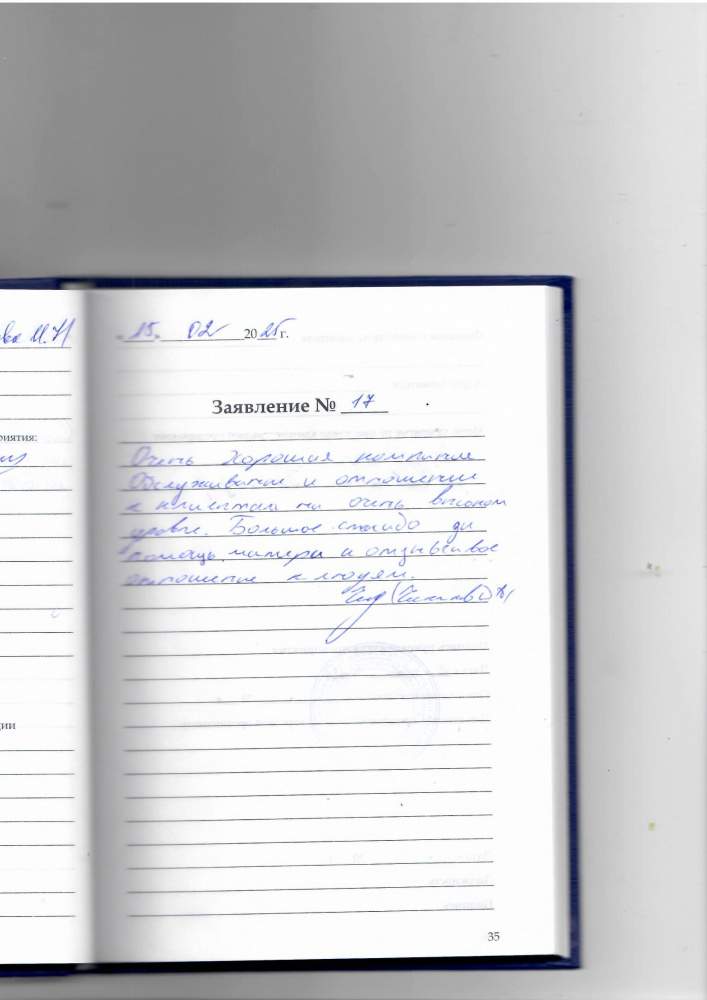 М.Н
"15" 02 2025 г.
Заявление № 17
риятия:
Очень хорошая компания
Обслуживание и отношение
к клиентам на очень высоком
уровне. Большое спасибо за
помощь, манеры и отзывчивое
отношение к людям.
ции
35